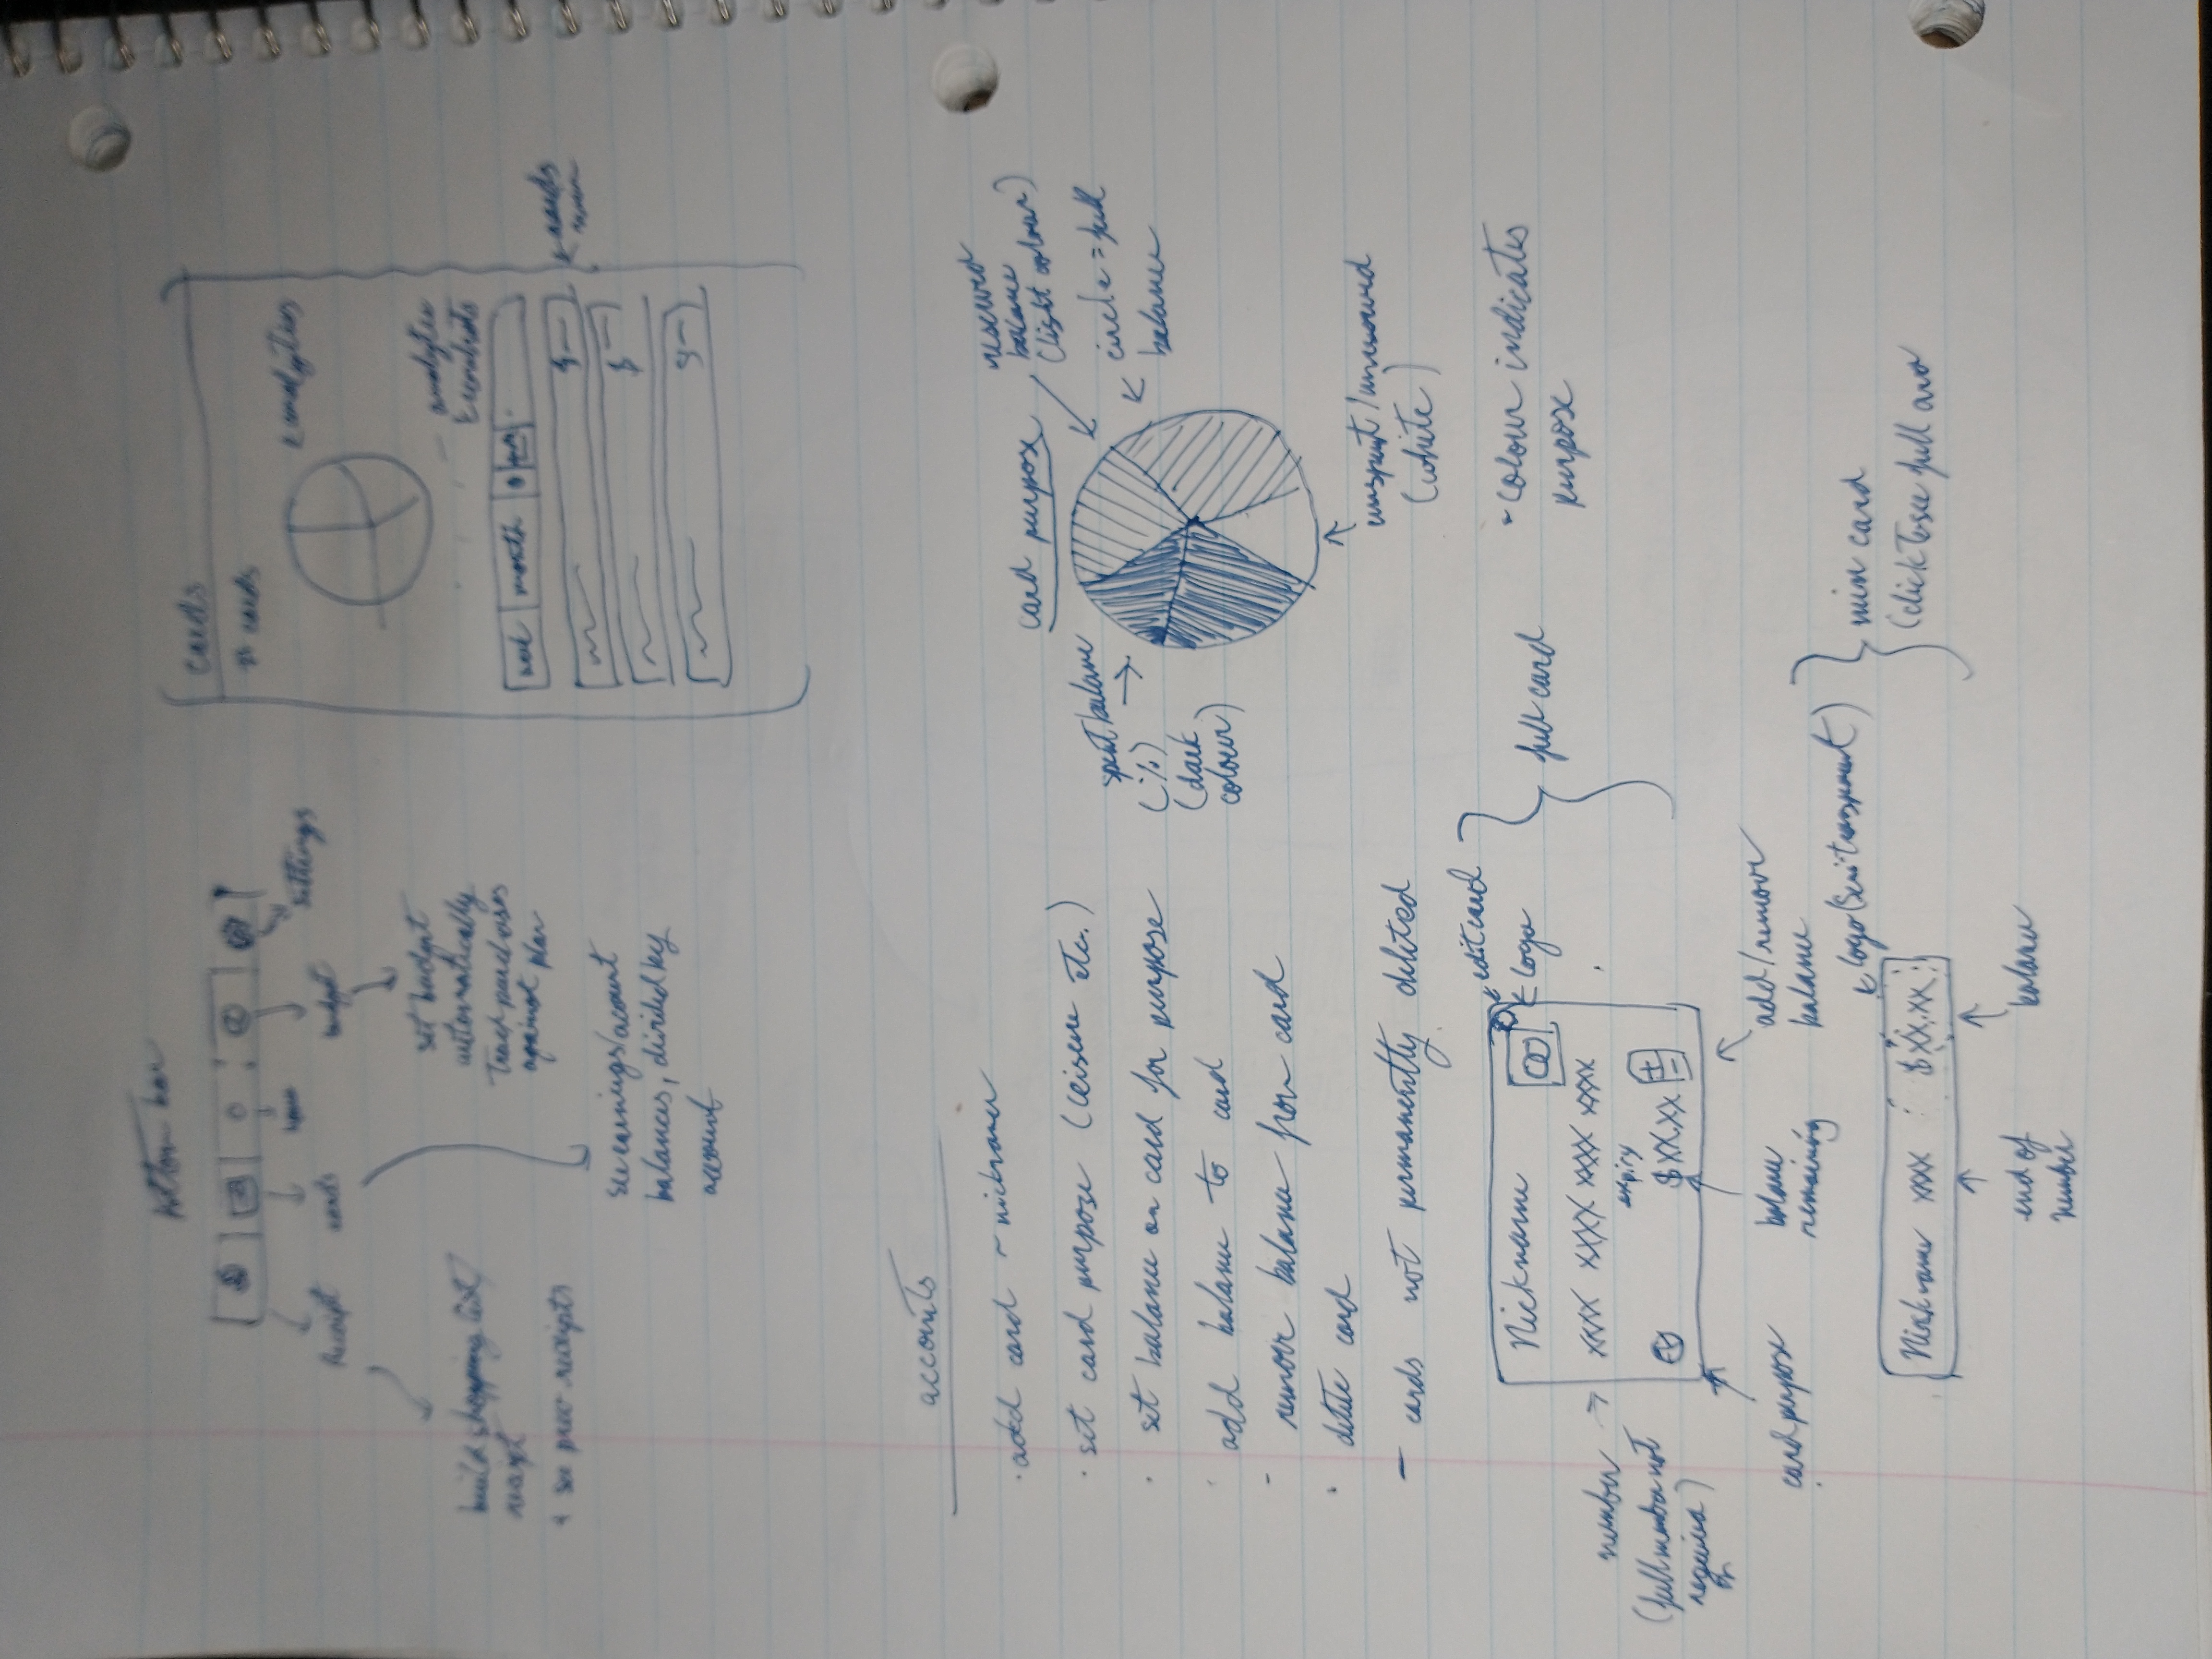 bottom bar
Receipt
cards
home
budget
settings
build shopping list/
receipt
+ see prev receipts
see earnings/acount
balances, divided by
account
set budget
automatically
Track purchases
against plan
cards
# cards
analytics
analytics
week month
$
$
$
cards
accounts
· add card ~ nickname
· set card purpose (leisure etc.)
· set balance on card for purpose
· add balance to card
- remove balance from card
· delete card
- cards not permanently deleted
card purpose
reserved
balance
(light colour)
circle = full
balance
spent balance
(%)
(dark
colour)
unspent/unreserved
(white)
~ colour indicates
purpose
Nickname
XXXX XXXX XXXX XXXX
expiry
$XX.XX
+
-
edit card
logo
full card
number
(full number not
required)
card purpose
balance
remaining
add/remove
balance
logo (semi-transparent)
Nickname XXXX $XX.XX
end of
number
balance
mini card
(click to see full